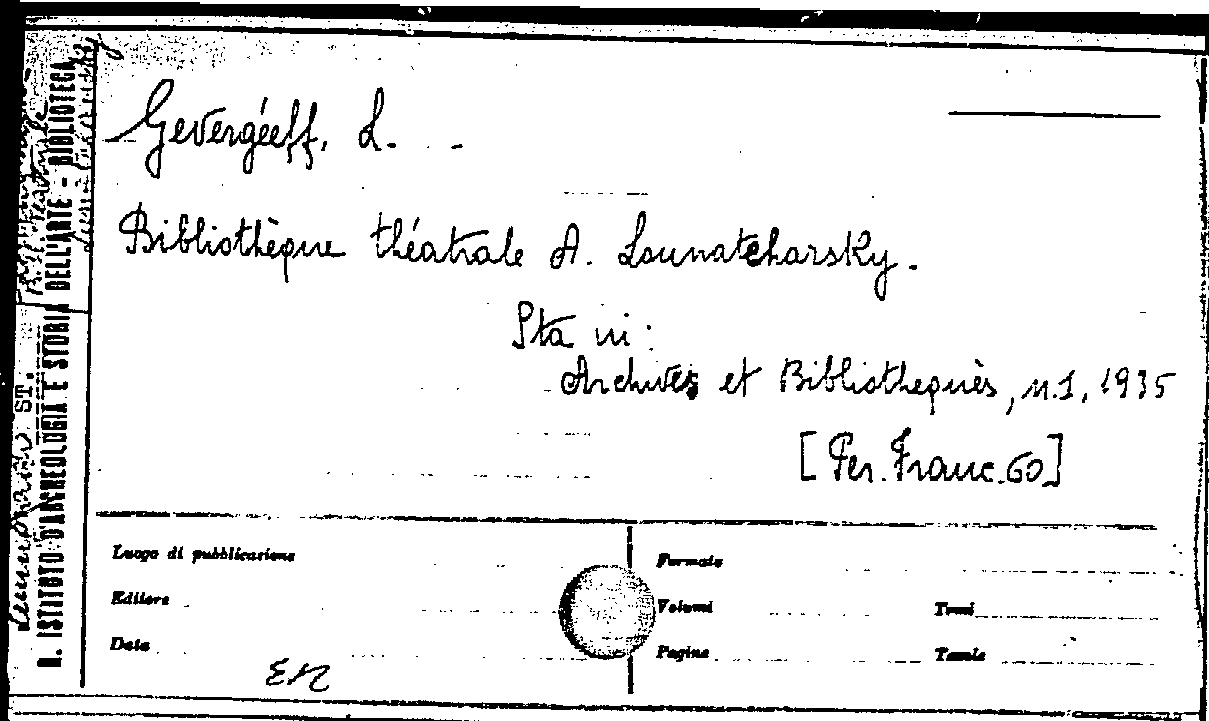 Gevergéeff, L.
Bibliothèque théatrale A. Lounatcharsky.
Sta in:
Archives et Bibliothequès, n.1, 1935
[Per. Franc. 60]
R. ISTITUTO D'ARCHEOLOGIA E STORIA DELL'ARTE - BIBLIOTECA
ST.
Luogo di pubblicazione
Editore
Data
Formato
Volumi
Tomi
Pagine
Tavole